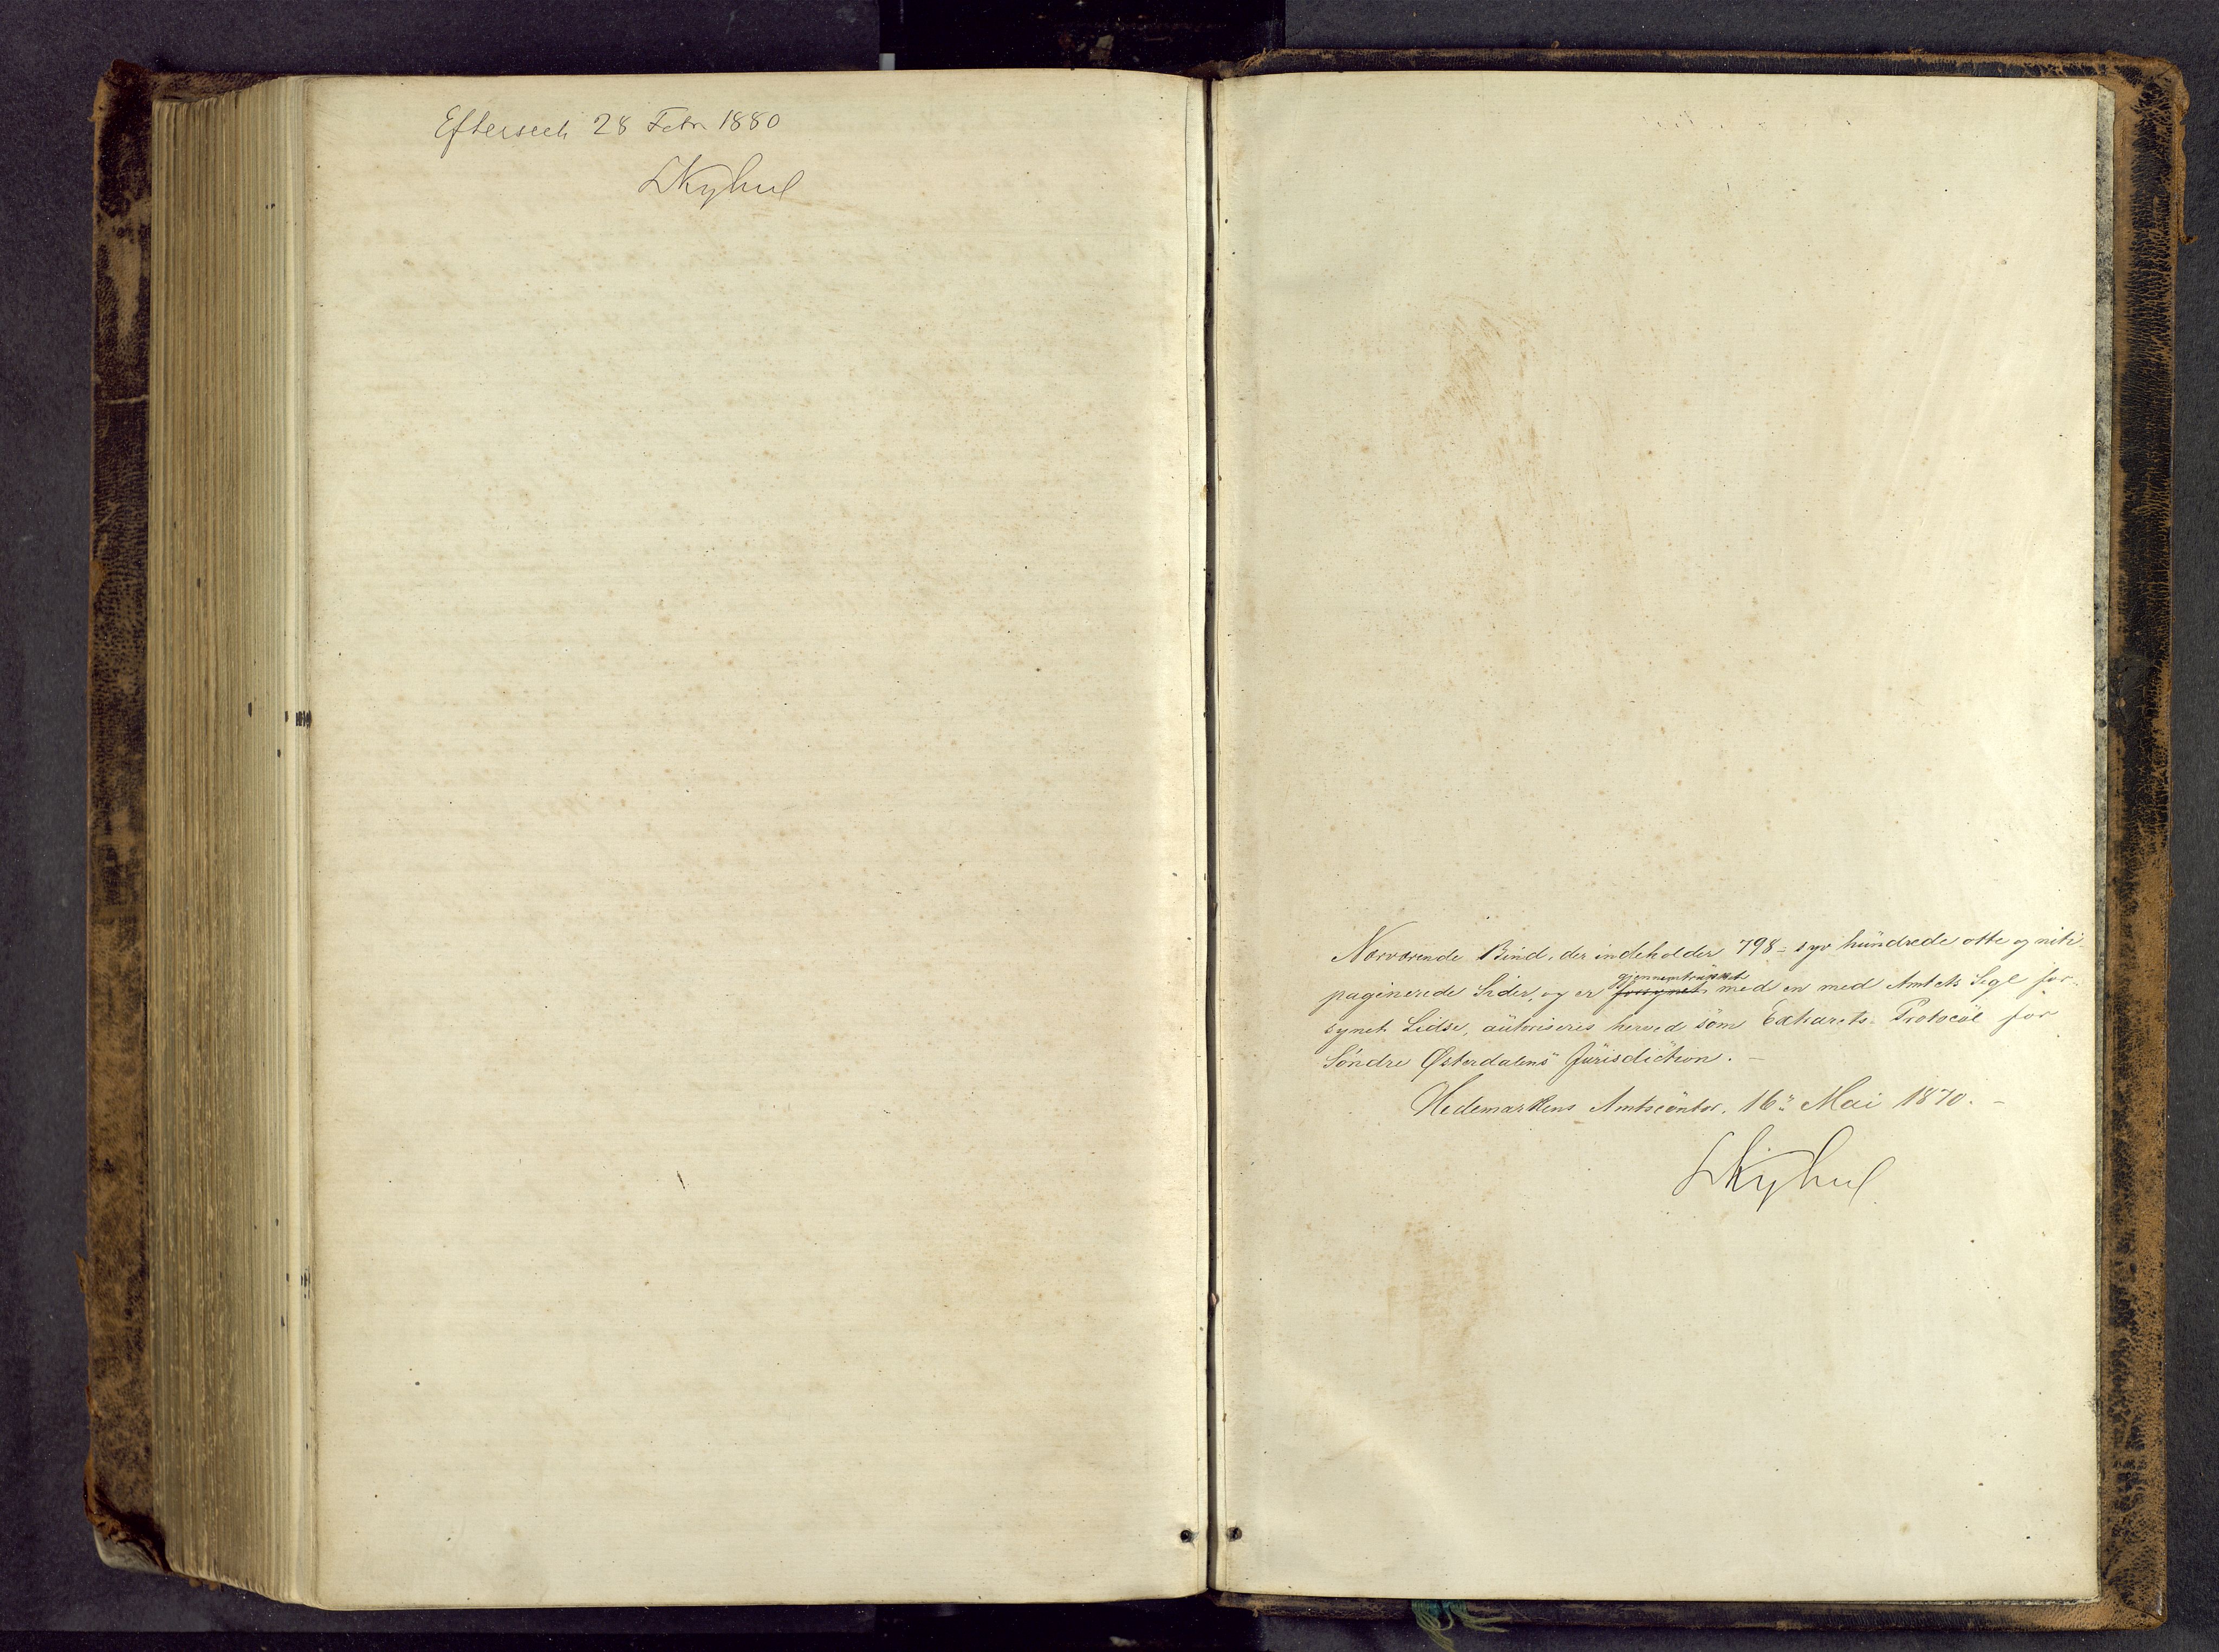 Efterseet 28 Febr. 1880
LKyhul
Nærværende Bind, der indeholder 798 - syv hundrede otte og niti -
paginerede Sider, og er gjennemtrukket forsynet med en med Amtets Segl for-
synet Lidse, autoriseres herved som Extrarets-Protocol for
Söndre Østerdalens Jurisdiction. -
Hedemarkens Amtscontor, 16 Mai 1870. -
LKyhul